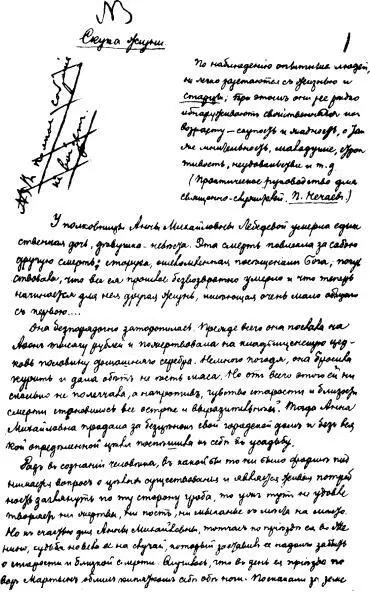 NB
Скука жизни.
1
По наблюдению опытных людей,
не легко расстаются с жизнью и
старцы; при этом они же редко
обнаруживают свойственные их
возрасту — скупость и жадность, а так
же мнительность, малодушие, строп-
тивость, неудовольствие и т. д
(Практическое руководство для
священно-служителей. П. Нечаев).
У полковницы Анны Михайловны Лебедевой умерла един
ственная дочь, девушка-невеста. Эта смерть повлекла за собою
другую смерть: старуха, ошеломленная посещением Бога, почув
ствовала, что все ея прошлое безвозвратно умерло и что теперь
начинается для нея другая жизнь, имеющая очень мало общаго
с первою....
Она безпорядочно заторопилась. Прежде всего она послала на
Афон тысячу рублей и пожертвовала на кладбищенскую цер-
ковь половину домашняго серебра. Немного погодя, она бросила
курить и дала обет не есть мяса. Но от всего этого ей ни
сколько не полегчало, а напротив, чувство старости и близости
смерти становилось все острее и выразительней. Тогда Анна
Михайловна продала за безценок свой городской дом и без вся
кой определенной цели поспешила к себе в усадьбу.
Раз в сознании человека, в какой бы то ни было форме под
нимается вопрос о целях существования и является живая потреб
ность заглянуть по ту сторону гроба, то уж тут не удовле
творяет ни жертва, ни пост, ни мыканье с места на место.
Но к счастью для Анны Михайловны, тотчас по приезде ея в Же
нино, судьба навела ее на случай, который заставил ее надолго забыть
о старости и близкой смерти. Случилось, что в день ея приезда по
вар Мартын облил кипятком себе обе ноги. Поскакали за земс